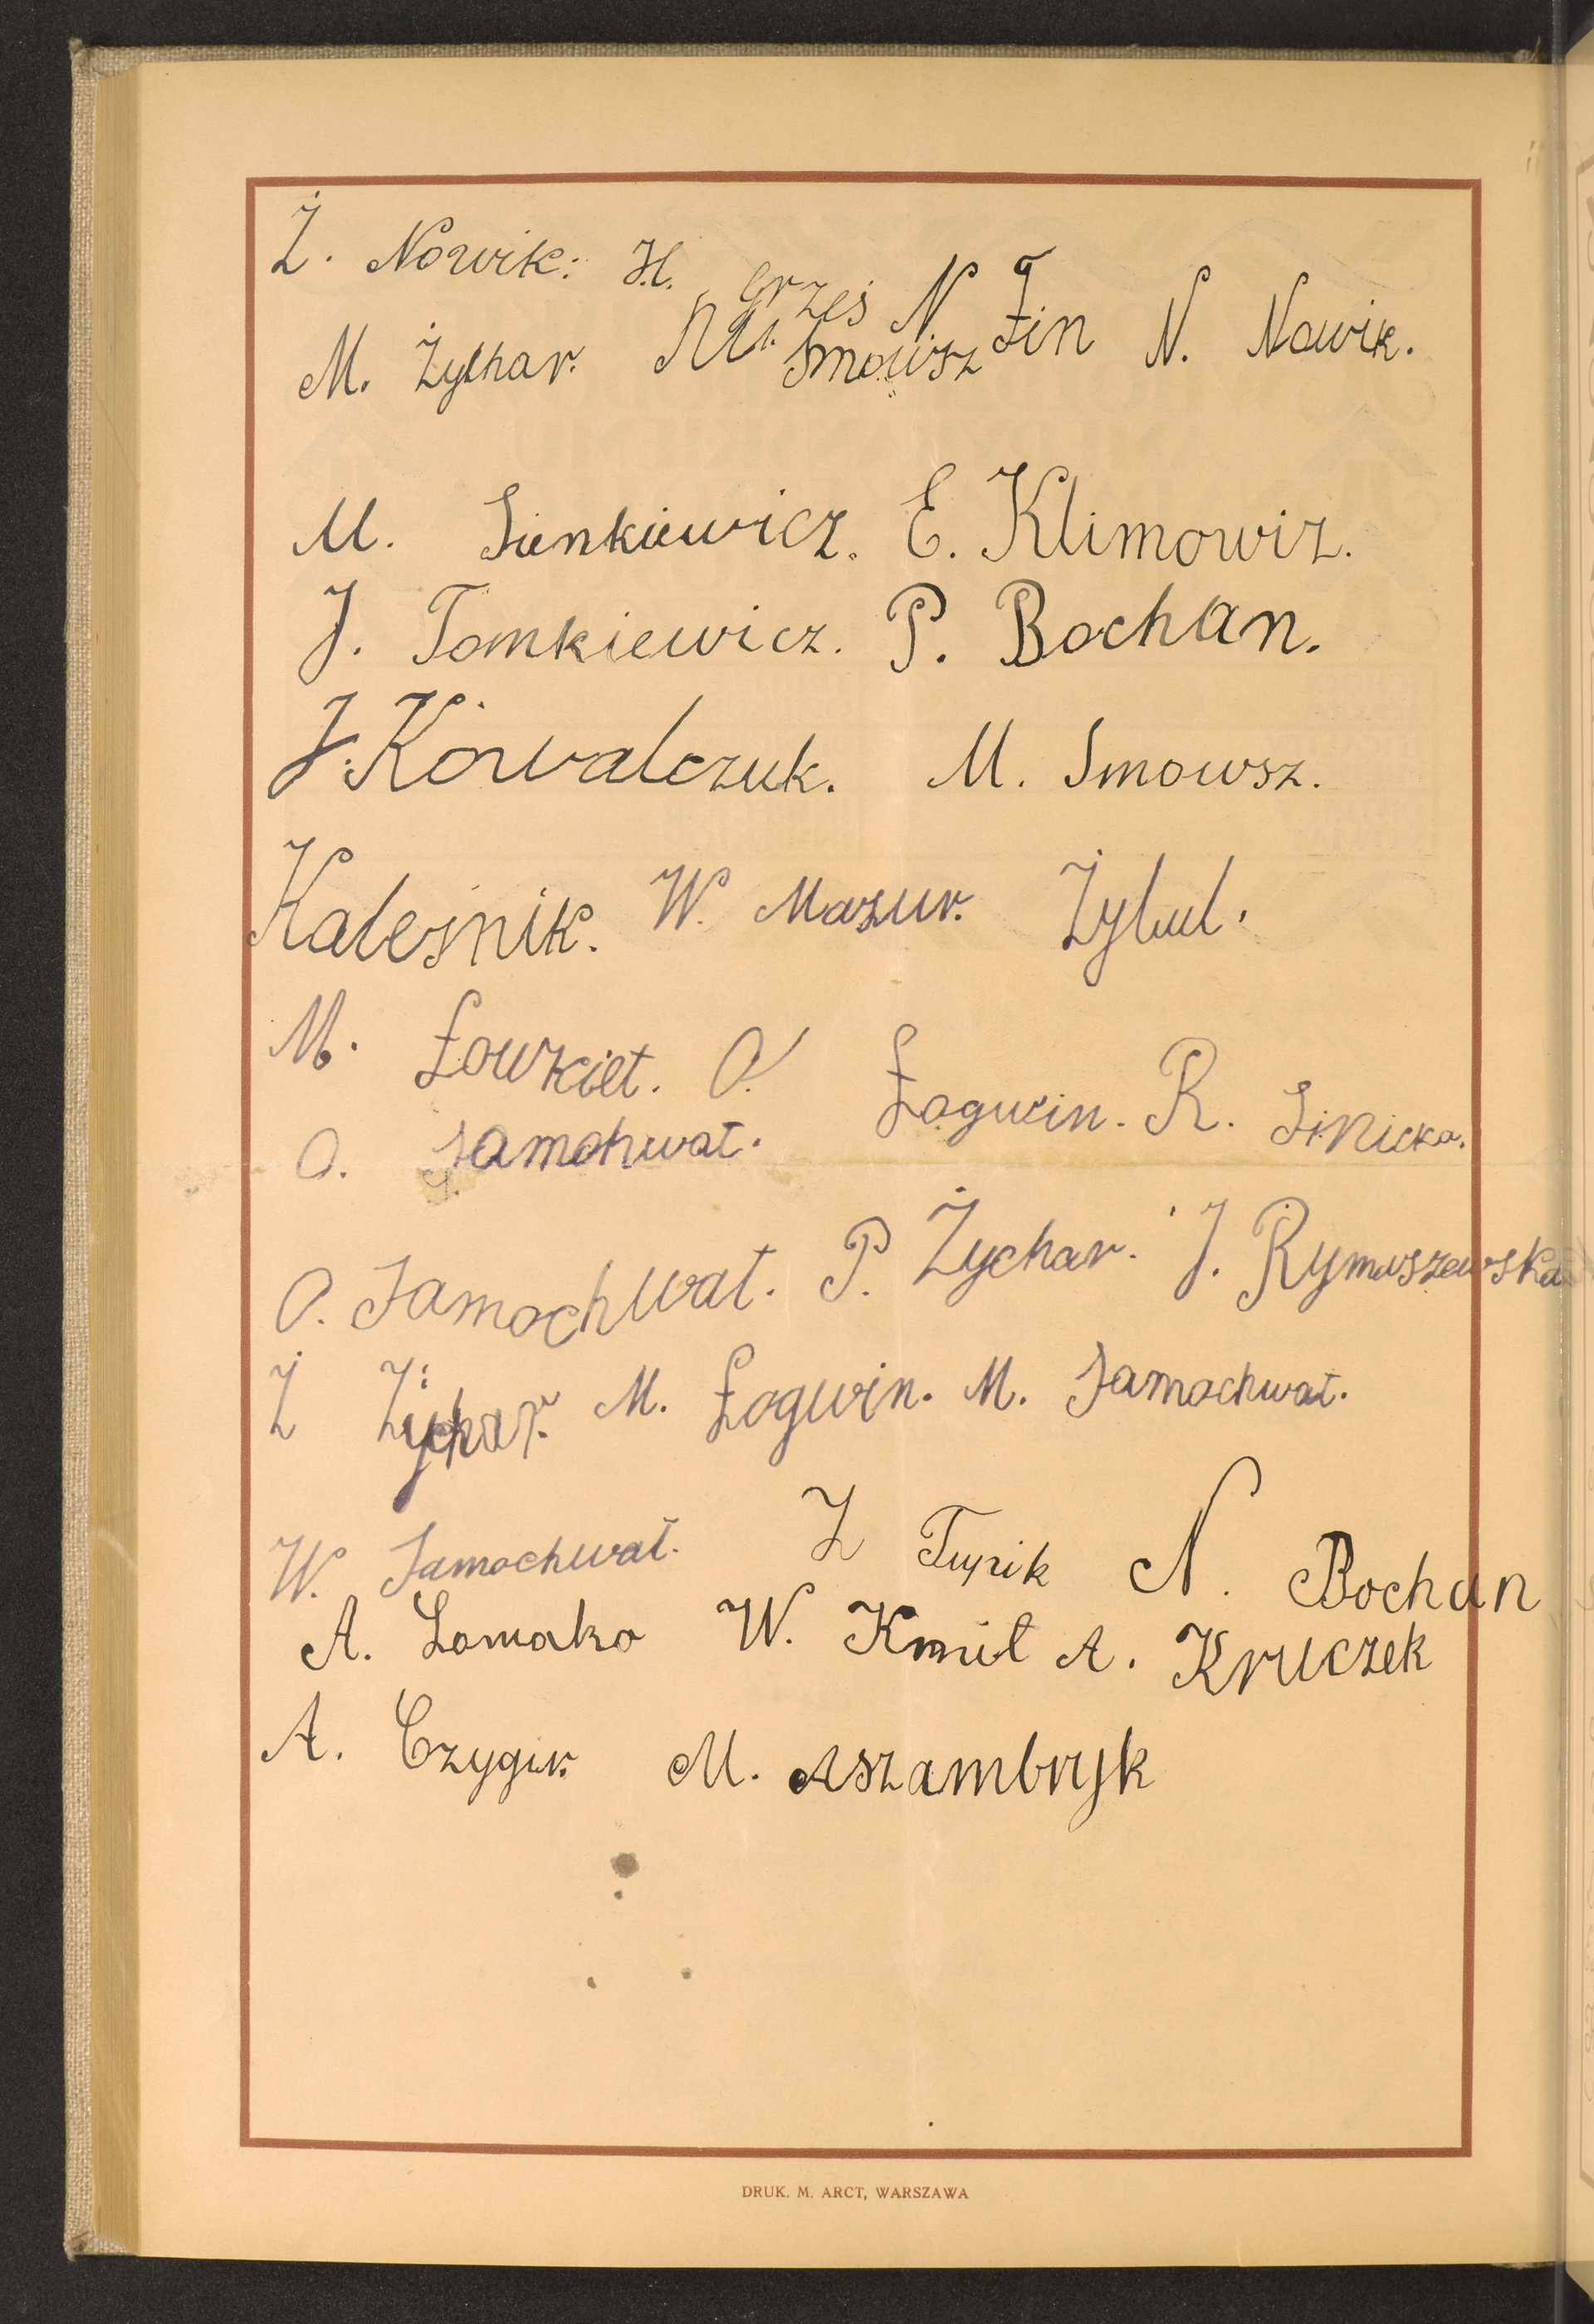 Ż. Nowik: H. Grześ N Fin
M. Żychar. M. Smowsz N. Nowik.
M. Sienkiewicz. E. Klimowiz.
J. Tomkiewicz. P. Bochan.
J. Kowalczuk. M. Smowsz.
Kaleśnik. W. Mazur. Żybul.
M. Łowkiet. O. Łogwin. R. Sinicka.
O. Samohwał.
O. Samochwał. P. Żychar. J. Rymaszewska
Ż Żychar. M. Łogwin. M. Samochwał.
W. Samochwał. Z Tupik N. Bochan
A. Lomako W. Kmit A. Kruczek
A. Czygir. M. Aszambryk
DRUK. M. ARCT, WARSZAWA